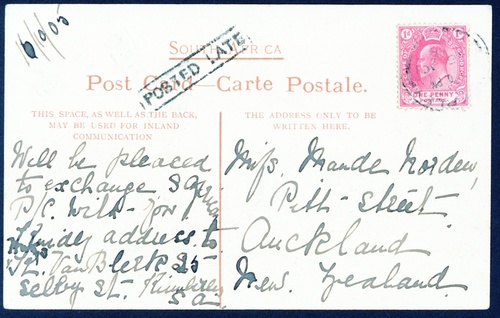 16/9/05
SOUTH AFRICA
POSTED LATE
Post Card—Carte Postale.
THIS SPACE, AS WELL AS THE BACK,
MAY BE USED FOR INLAND
COMMUNICATION
THE ADDRESS ONLY TO BE
WRITTEN HERE.
ONE PENNY
POSTAGE
Will be pleased
to exchange
P/C. with you
address to
Van Blerk 25
Selby St. Kimberley
S.A.
Miss Maude Norden,
Pitt Street
Auckland
New Zealand